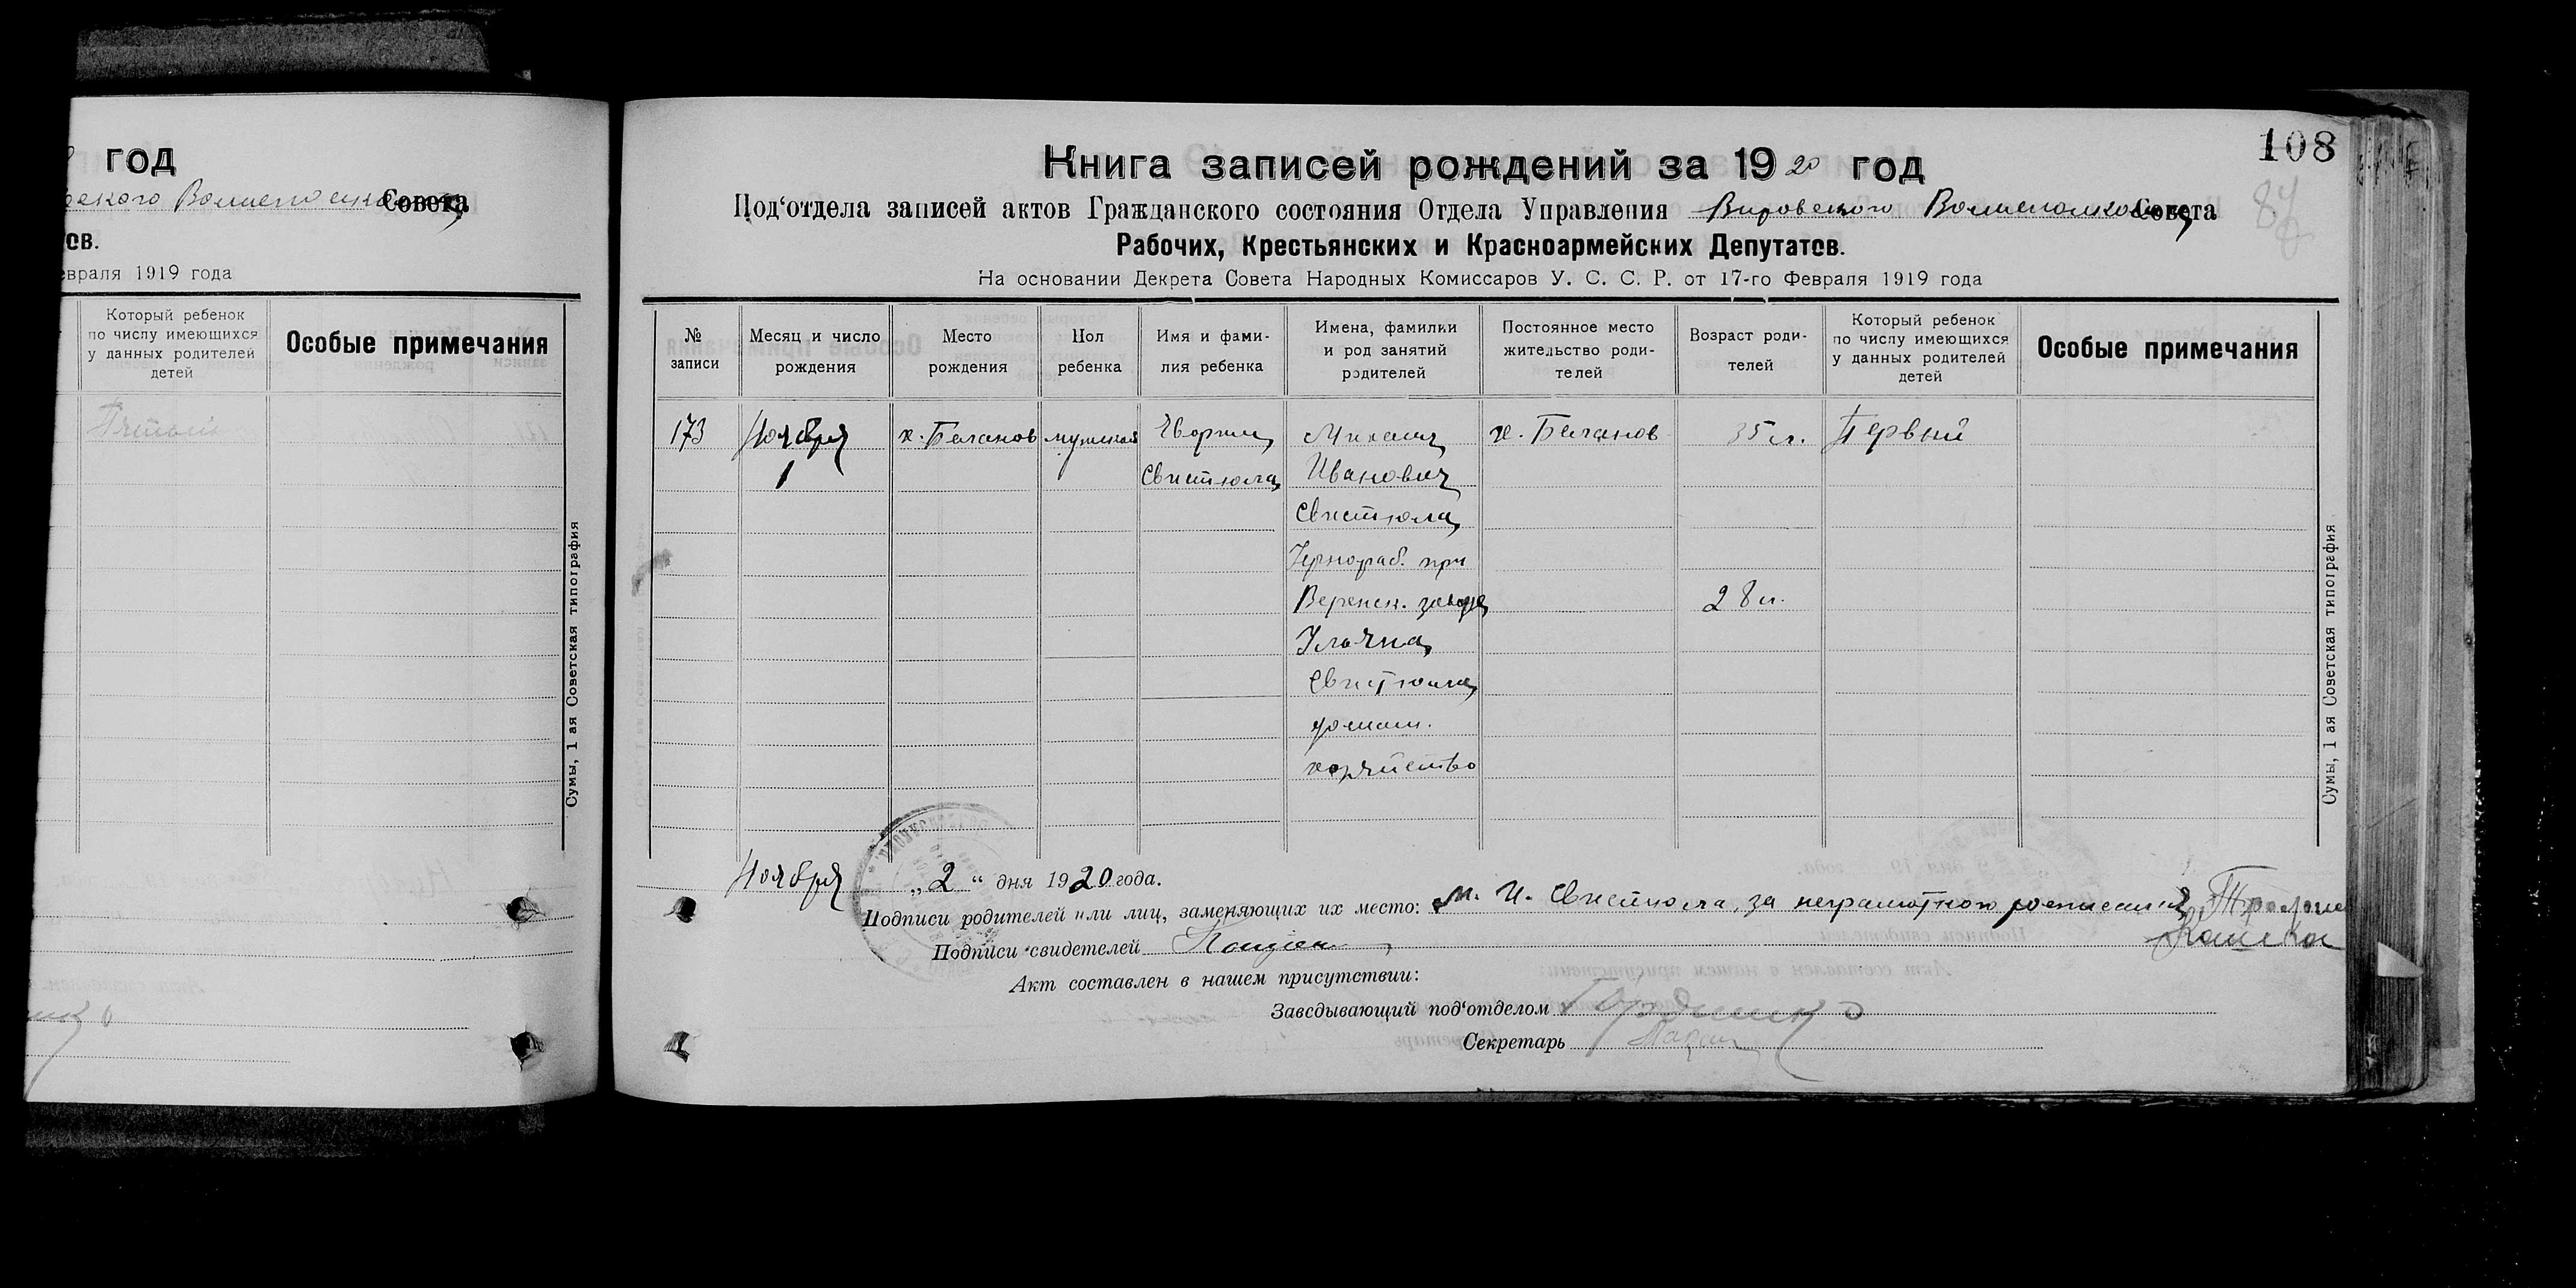 год
Совета
ов.
евраля 1919 года
Который ребенок
по числу имеющихся
у данных родителей
детей
Особые примечания
Сумы, 1 ая Советская типография
108
Книга записей рождений за 1920 год
Под'отдела записей актов Гражданского состояния Отдела Управления Вировского Совета
Рабочих, Крестьянских и Красноармейских Депутатов.
На основании Декрета Совета Народных Комиссаров У. С. С. Р. от 17-го Февраля 1919 года
№
записи
Месяц и число
рождения
Место
рождения
Пол
ребенка
Имя и фами-
лия ребенка
Имена, фамилии
и род занятий
родителей
Постоянное место
жительство роди-
телей
Возраст роди-
телей
Который ребенок
по числу имеющихся
у данных родителей
детей
Особые примечания
173
Ноября
1
х. Баганов
мужской
Свистюла
Михаил
Иванович
Свистюла
Чернораб. при
заводе
Ульяна
Свистюла
домашн.
хозяйство
х. Баганов
35 л.
28 л.
Первый
Сумы, 1 ая Советская типография
Ноября „2“ дня 1920 года.
Подписи родителей или лиц, заменяющих их место: М. И. Свистюла, за неграмотного росписался
Подписи свидетелей
Акт составлен в нашем присутствии:
Заведывающий под'отделом
Секретарь